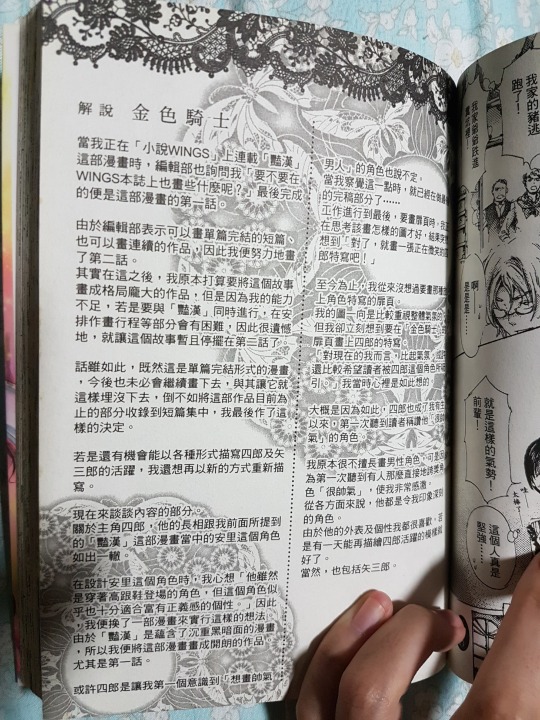 解說 金色騎士
當我正在「小說WINGS」上連載「豔漢」
這部漫畫時，編輯部也詢問我「要不要在
WINGS本誌上也畫些什麼呢？」最後完成
的便是這部漫畫的第一話。
由於編輯部表示可以畫單篇完結的短篇、
也可以畫連續的作品，因此我便努力地畫
了第二話。
其實在這之後，我原本打算要將這個故事
畫成格局龐大的作品，但是因為我的能力
不足，若是要與「豔漢」同時進行，在安
排作畫行程等部分會有困難，因此很遺憾
地，就讓這個故事暫且停擺在第二話了
話雖如此，既然這是單篇完結形式的漫畫
，今後也未必會繼續畫下去，與其讓它就
這樣埋沒下去，倒不如將這部作品目前為
止的部分收錄到短篇集中，我最後作了這
樣的決定。
若是還有機會能以各種形式描寫四郎及矢
三郎的活躍，我還想再以新的方式重新描
寫。
現在來談談內容的部分。
關於主角四郎，他的長相跟我前面所提到
的「豔漢」這部漫畫當中的安里這個角色
如出一轍。
在設計安里這個角色時，我心想「他雖然
是穿著高跟鞋登場的角色，但這個角色似
乎也十分適合富有正義感的個性。」因此
，我便換了一部漫畫來實行這樣的想法。
由於「豔漢」是蘊含了沉重黑暗面的漫畫
，所以我便將這部漫畫畫成開朗的作品，
尤其是第一話。
或許四郎是讓我第一個意識到「想畫帥氣
男人」的角色也說不定。
當我察覺這一點時，就已經在做最
的完稿部分了……
工作進行到最後，要畫扉頁時，我正
在思考該畫怎樣的圖才好，結果突
想到「對了，就畫一張正在微笑的四
郎特寫吧！」
至今為止，我從來沒想過要畫那種
上角色特寫的扉頁。
我的圖一向是比較重視整體氣氛的
但我卻立刻想到要在「金色騎士」的
扉頁畫上四郎的特寫
「對現在的我而言，比起氣氛，或許
還比較希望讀者被四郎這個角色所吸
引。」我當時心裡是如此想的
大概是因為如此，四郎也成了我有生
以來，第一次聽到讀者稱讚他「很帥
氣」的角色。
我原本很不擅長畫男性角色，可是因
為第一次聽到有人那麼直接地誇獎角
色「很帥氣」，使我非常感激。
從各方面來說，他都是令我印象深刻
的角色。
由於他的外表及個性我都很喜歡，若
是有一天能再描繪四郎活躍的模樣就
好了。
當然，也包括矢三郎。
我家的豬逃
跑了！
啊
是是是…
就是這樣的氣勢！
前輩！
這個人真是
堅強…